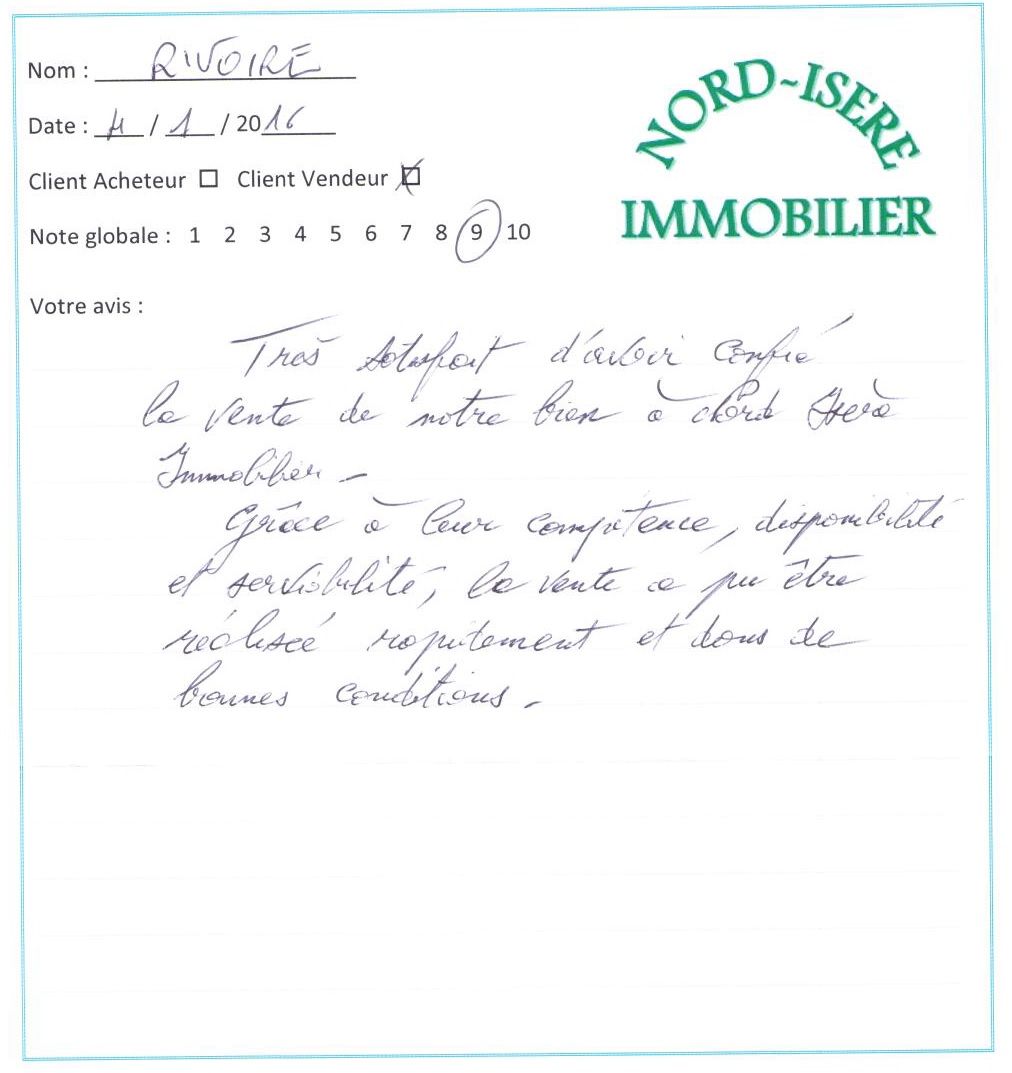 Nom : RIVOIRE
Date : 4 / 1 / 2016
Client Acheteur ☐ Client Vendeur ☒
Note globale : 1 2 3 4 5 6 7 8 9 10
NORD-ISERE
IMMOBILIER
Votre avis :
Très satisfait d'avoir confié
la vente de notre bien à Nord Isère
Immobilier -
Grâce à leur compétence, disponibilité
et serviabilité, la vente a pu être
réalisée rapidement et dans de
bonnes conditions -